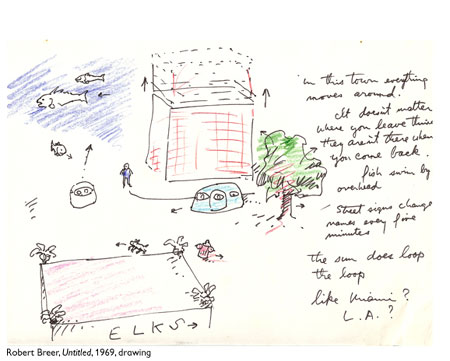 in this town everything
moves around.
It doesn't matter
where you leave things
they aren't there when
you come back.
fish swim by
overhead
Street signs change
names every five
minutes
the sun does loop
the loop
like Miami?
L.A.?
ELKS
Robert Breer, Untitled, 1969, drawing